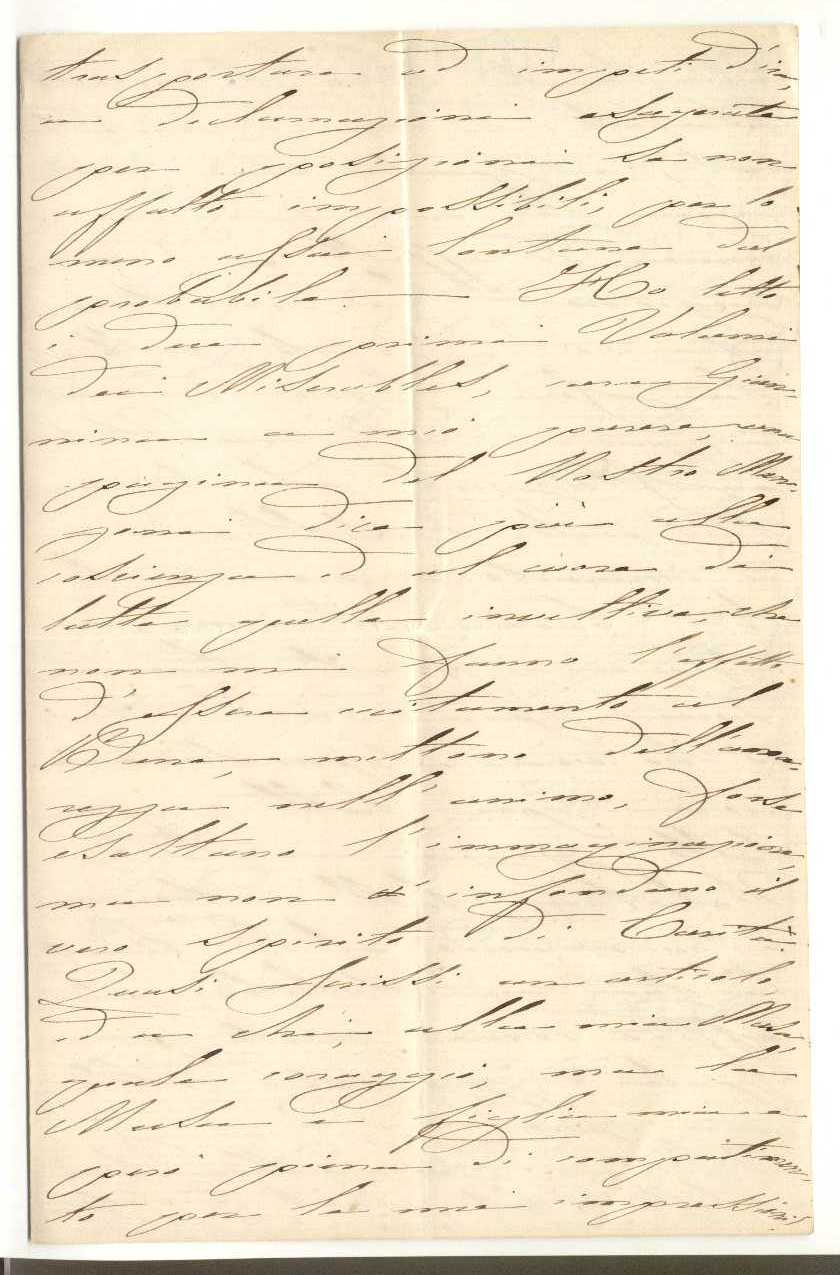 trasportare ad impeti d'ira,
a declamazioni esagerate
per posizioni se non
affatto impossibili, per lo
meno assai lontane dal
probabile — Ho letto
i due primi Volumi
dei Miserables, cara Gian-
nina a mio parere, una
pagina del Nostro Man-
zoni dice più alla
coscienza ed al cuore di
tutte quelle invettive, che
non mi fanno l'effetto
d'essere eccitamento al
Bene, mettono dell'ama-
rezza nell'animo, forse
esaltano l'immaginazione,
ma non infondono il
vero spirito di Carità.
Quasi scrissi un articolo,
ed a chi, alla mia Musa!
quale coraggio, ma la
Musa è figlia mia e
però piena di compatimen-
to per le mie impressioni